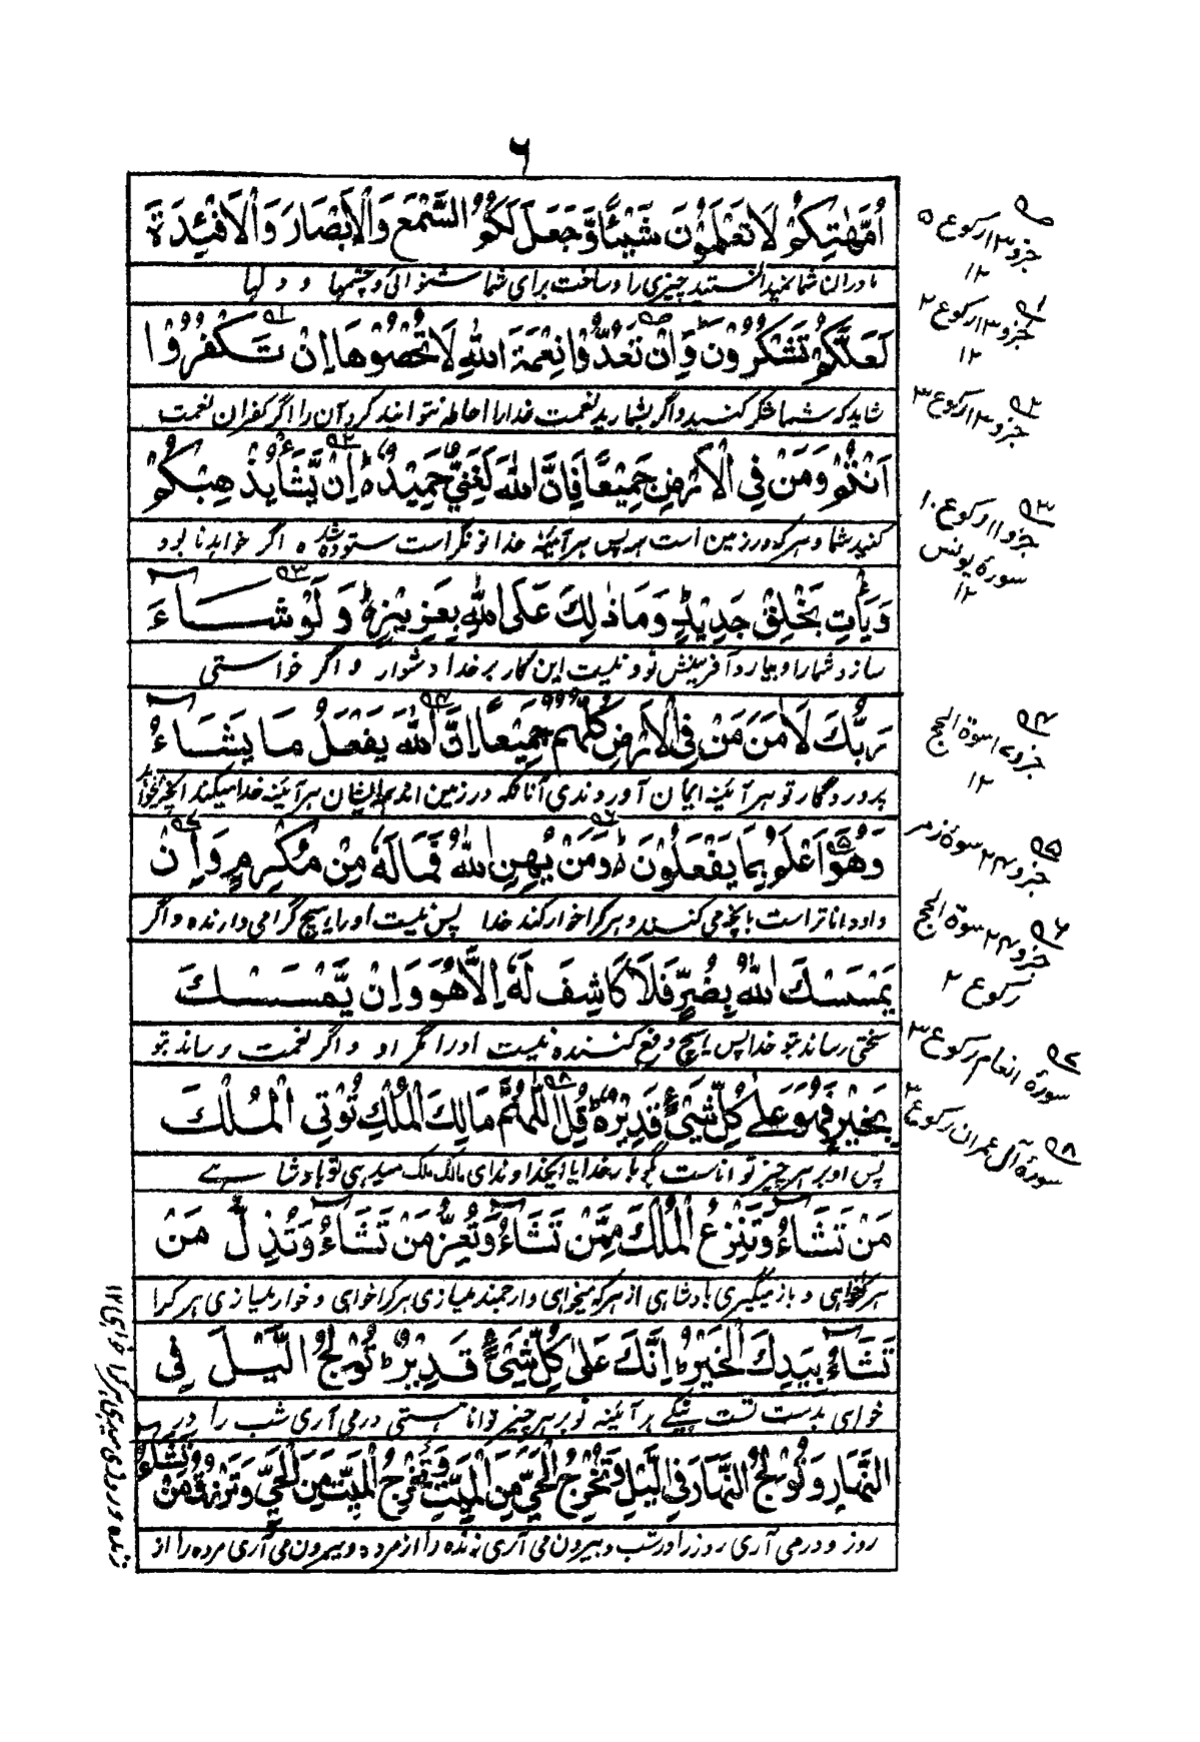 ٦
اُمَّهٰتِكُمْ لَا تَعْلَمُوْنَ شَيْئًا وَّجَعَلَ لَكُمُ السَّمْعَ وَالْاَبْصَارَ وَالْاَفْـِٕدَةَ
مادران شما نمیدانستید چیزی را و ساخت برای شما شنوائی و چشمها و دلها
لَعَلَّكُمْ تَشْكُرُوْنَ وَاِنْ تَعُدُّوْا نِعْمَةَ اللّٰهِ لَا تُحْصُوْهَا اِنْ تَكْفُرُوْا
شاید که شما شکر کنید و اگر بشمارید نعمت خدا را احاطه نتوانید کرد آن را اگر کفران نعمت
اَنْتُمْ وَمَنْ فِى الْاَرْضِ جَمِيْعًا فَاِنَّ اللّٰهَ لَغَنِىٌّ حَمِيْدٌ اِنْ يَّشَاْ يُذْهِبْكُمْ
کنید شما و هر که در زمین است همه پس هر آئینه خدا تونگر است ستوده شده اگر خواهد نابود
وَيَاْتِ بِخَلْقٍ جَدِيْدٍ وَمَا ذٰلِكَ عَلَى اللّٰهِ بِعَزِيْزٍ وَلَوْ شَآءَ
سازد شما را و بیارد آفرینش نو و نیست این کار بر خدا دشوار و اگر خواستی
رَبُّكَ لَاٰمَنَ مَنْ فِى الْاَرْضِ كُلُّهُمْ جَمِيْعًا اِنَّ اللّٰهَ يَفْعَلُ مَا يَشَآءُ
پروردگار تو هر آئینه ایمان آوردندی آنانکه در زمین اند همه ایشان هر آئینه خدا میکند آنچه خواهد
وَهُوَ اَعْلَمُ بِمَا يَفْعَلُوْنَ وَمَنْ يُّهِنِ اللّٰهُ فَمَا لَهٗ مِنْ مُّكْرِمٍ وَاِنْ
و او داناتر است بآنچه می کنند و هر کرا خوار کند خدا پس نیست او را هیچ گرامی دارنده و اگر
يَّمْسَسْكَ اللّٰهُ بِضُرٍّ فَلَا كَاشِفَ لَهٗ اِلَّا هُوَ وَاِنْ يَّمْسَسْكَ
سختی رساند بتو خدا پس هیچ دفع کننده نیست او را مگر او و اگر نعمت رساند بتو
بِخَيْرٍ فَهُوَ عَلٰى كُلِّ شَىْءٍ قَدِيْرٌ قُلِ اللّٰهُمَّ مَالِكَ الْمُلْكِ تُؤْتِى الْمُلْكَ
پس او بر هر چیز تواناست گو بار خدایا ای خداوندای مالک ملک میدهی تو پادشاهی
مَنْ تَشَآءُ وَتَنْزِعُ الْمُلْكَ مِمَّنْ تَشَآءُ وَتُعِزُّ مَنْ تَشَآءُ وَتُذِلُّ مَنْ
هر کرا خواهی و باز میگیری پادشاهی از هر که میخواهی و ارجمند میسازی هر کرا خواهی و خوار میسازی هر کرا
تَشَآءُ بِيَدِكَ الْخَيْرُ اِنَّكَ عَلٰى كُلِّ شَىْءٍ قَدِيْرٌ تُوْلِجُ الَّيْلَ فِى
خواهی بدست تست نیکی هر آئینه تو بر هر چیز توانا هستی در می آری شب را در
النَّهَارِ وَتُوْلِجُ النَّهَارَ فِى الَّيْلِ وَتُخْرِجُ الْحَىَّ مِنَ الْمَيِّتِ وَتُخْرِجُ الْمَيِّتَ مِنَ الْحَىِّ وَتَرْزُقُ مَنْ تَشَآءُ
روز و در می آری روز را در شب و بیرون می آری زنده را از مرده و بیرون می آری مرده را از
زنده و روزی میدهی هر کرا خواهی ١٢
٩٠
جزو ١٣ رکوع ٥
١٢
٩١
جزو ١٣ رکوع ٢
١٢
٩٢
جزو ١٣ رکوع ٣
٩٣
جزو ١١ رکوع ١٠
سورهٔ یونس
١٢
٩٤
جزو ١٧ سورة الحج
١٢
٩٥
جزو ٢٤ سورهٔ زمر
٩٦
سورة الحج
رکوع ٢
٩٧
سورهٔ انعام رکوع ٣
٩٨
سورهٔ آل عمران رکوع ٣